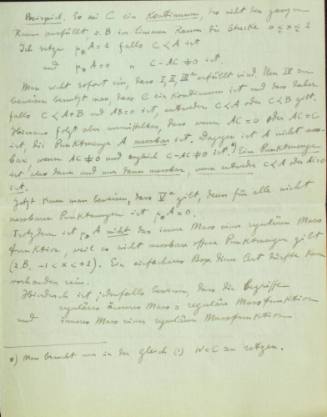 Beispiel. Es sei C ein Kontinuum, das nicht den ganzen
Raum ausfüllt z.B. im linearen Raum die Strecke 0 ≤ x ≤
Ich setze μ₀A = 1 falls C < A ist
und μ₀A = 0 " C - AC ≠ 0 ist.
Man sieht sofort ein, dass I, II, III erfüllt sind. Um IV zu
beweisen benutzt man, dass C ein Kontinuum ist und dass daher
falls C < A+B und AB=0 ist, entweder C < A oder C < B gilt.
Hieraus folgt aber unmittelbar, dass wenn AC = 0 oder AC = C
ist, die Punktmenge A messbar ist. Dagegen ist A nicht mess-
bar, wenn AC ≠ 0 und zugleich C - AC ≠ 0 ist. *) Eine Punktmenge
ist also dann und nur dann messbar, wenn entweder C < A oder AC = 0
ist.
Jetzt kann man beweisen, dass V gilt, denn für alle nicht
messbaren Punktmengen ist μ₀A = 0.
Trotzdem ist μ₀A nicht das innere Mass einer regulären Mass
funktion, weil es nicht messbare offene Punktmengen gibt
(z.B. -1 < x < +1). Ein einfacheres Bsp. dieser Art dürfte kaum
vorhanden sein.
Hierdurch ist jedenfalls bewiesen, dass die Begriffe
reguläres inneres Mass = reguläre Massfunktion
und inneres Mass einer regulären Massfunktion
*) Man braucht nur in der Gleich (1) W = C zu setzen.